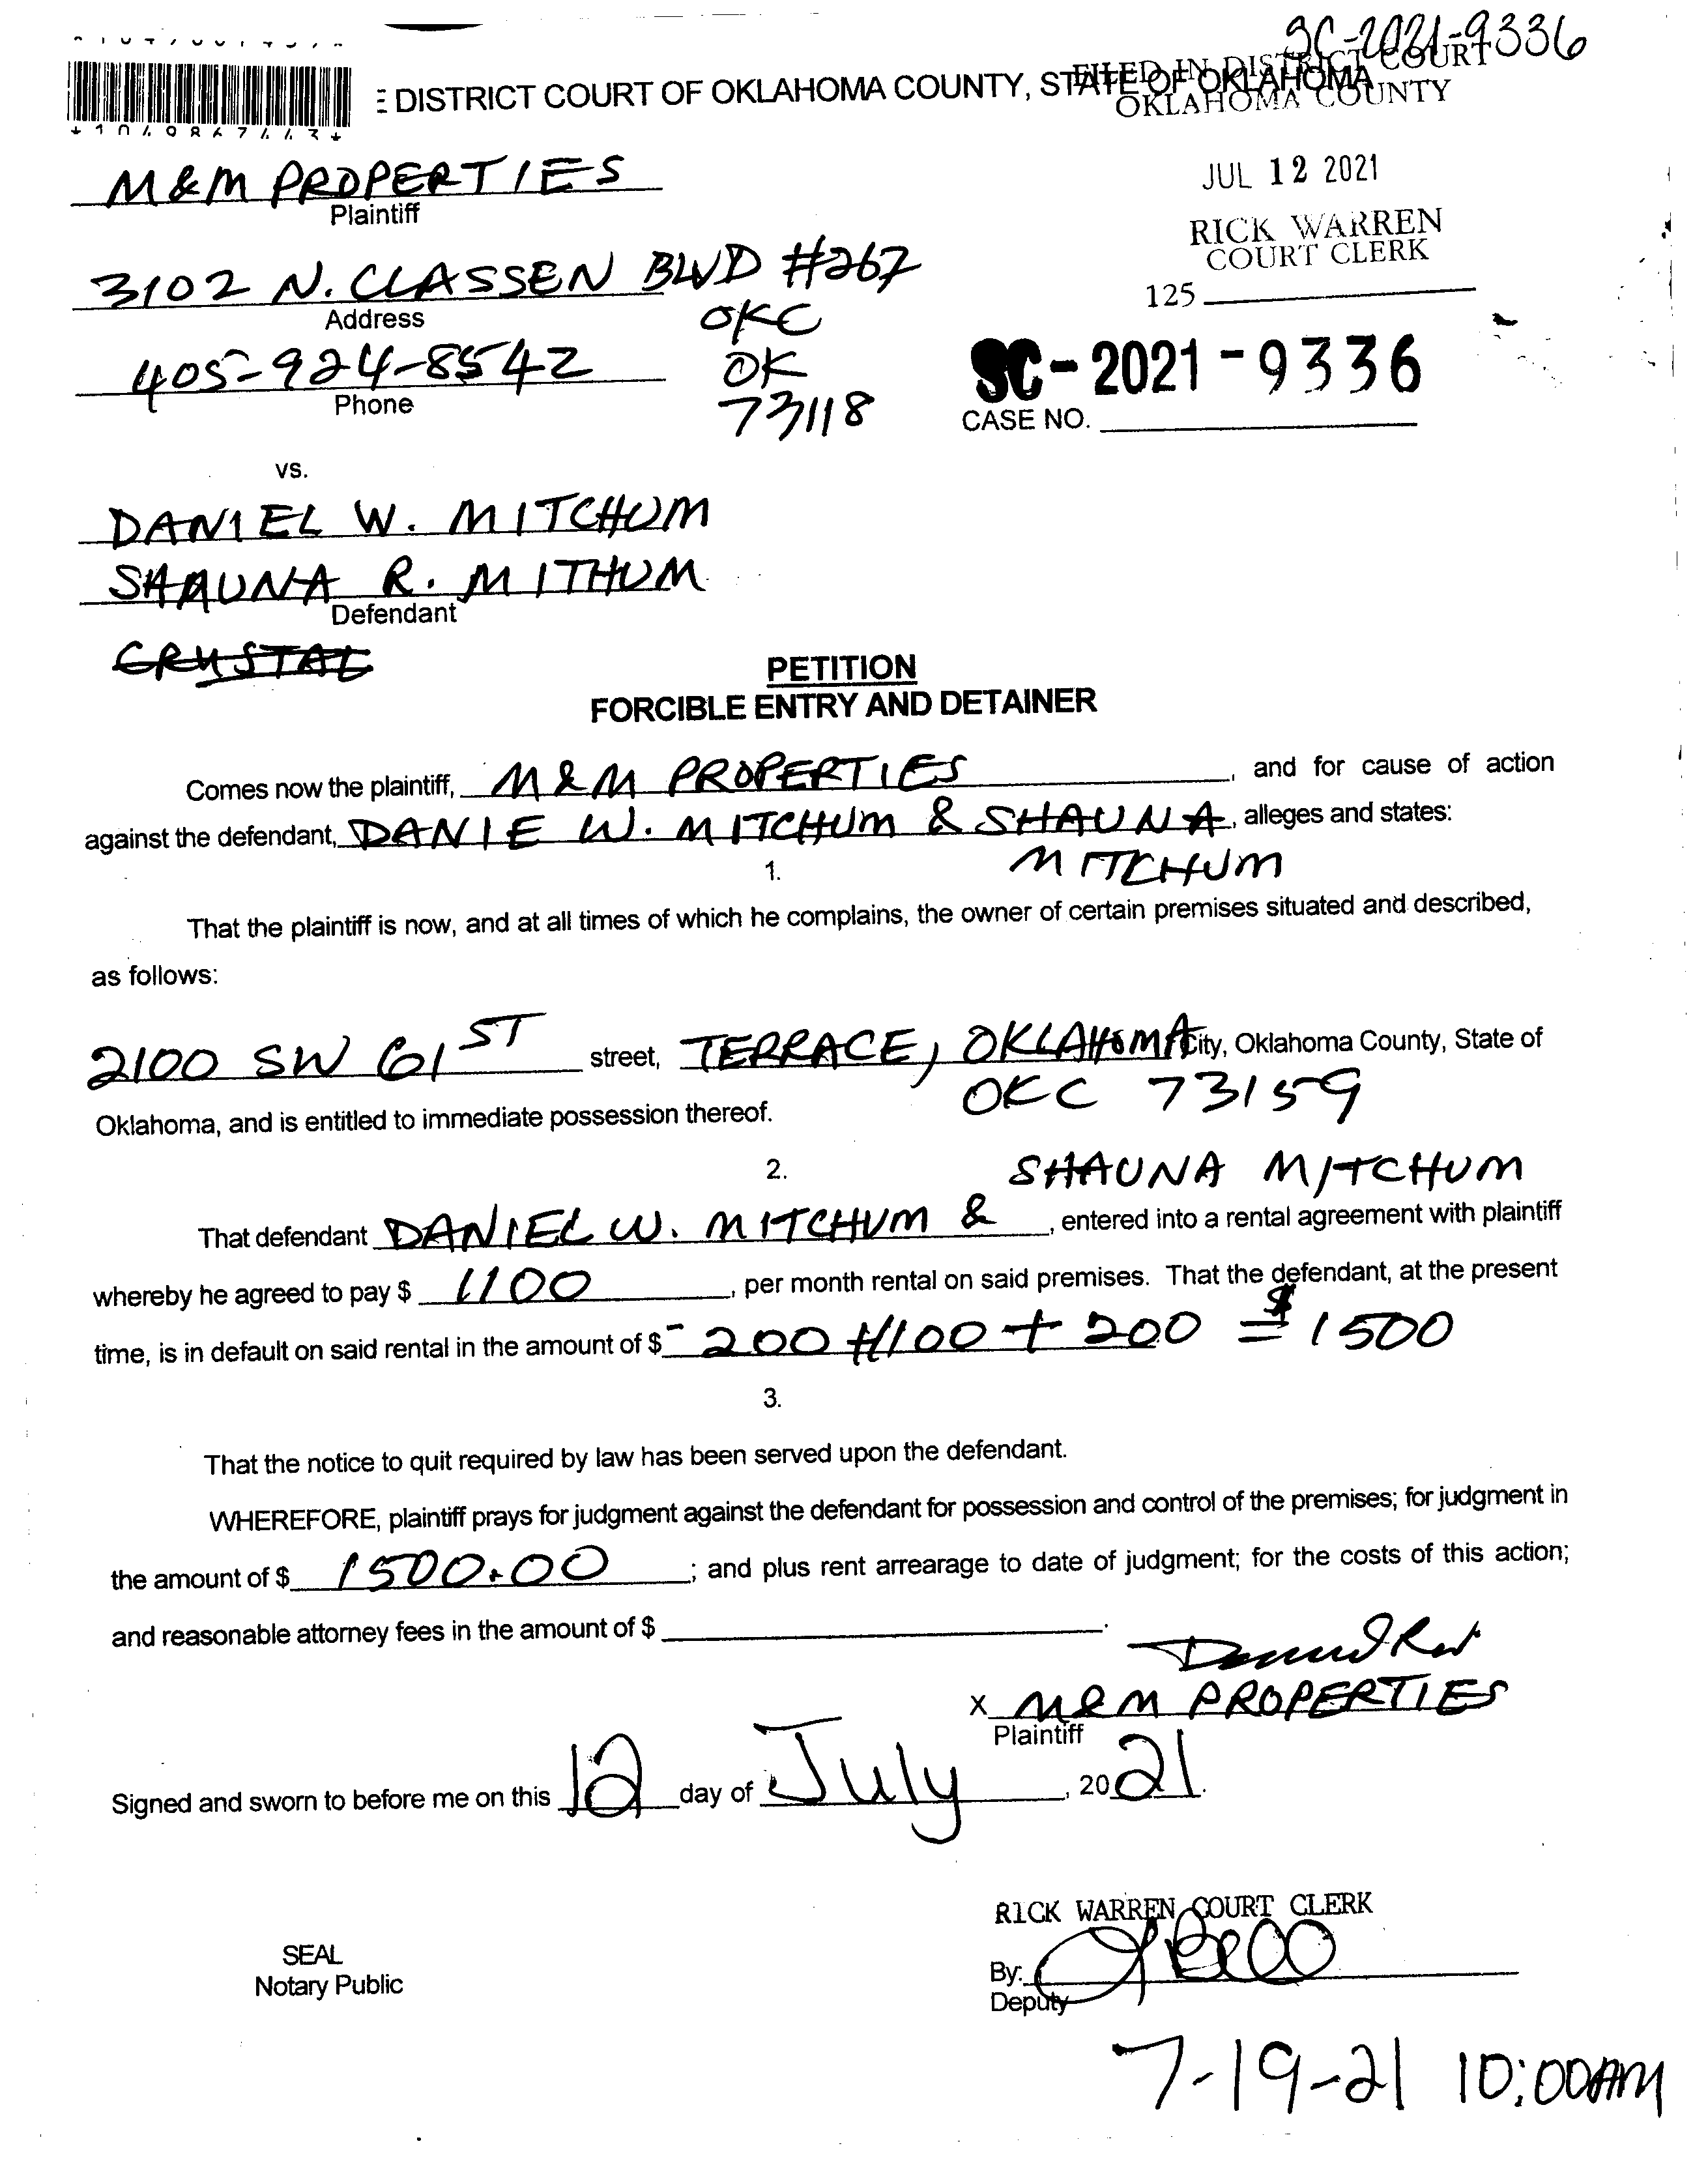 SC-2021-9336
E DISTRICT COURT OF OKLAHOMA COUNTY, STATE OF OKLAHOMA
FILED IN DISTRICT COURT
OKLAHOMA COUNTY
JUL 12 2021
RICK WARREN
COURT CLERK
125
M&M PROPERTIES
Plaintiff
3102 N. CLASSEN BLVD #267
Address
OKC
405-924-8542
OK
Phone
73118
SC-2021-9336
CASE NO.
vs.
DANIEL W. MITCHUM
SHAUNA R. MITHUM
Defendant
CRYSTAL
PETITION
FORCIBLE ENTRY AND DETAINER
Comes now the plaintiff, M&M PROPERTIES, and for cause of action
against the defendant, DANIE W. MITCHUM & SHAUNA, alleges and states:
MITCHUM
1.
That the plaintiff is now, and at all times of which he complains, the owner of certain premises situated and described,
as follows:
2100 SW 61ST street, TERRACE, OKLAHOMA City, Oklahoma County, State of
OKC 73159
Oklahoma, and is entitled to immediate possession thereof.
2.
SHAUNA MITCHUM
That defendant DANIEL W. MITCHUM &, entered into a rental agreement with plaintiff
whereby he agreed to pay $ 1100, per month rental on said premises. That the defendant, at the present
time, is in default on said rental in the amount of $ 200 +1100 + 200 = $1500
3.
That the notice to quit required by law has been served upon the defendant.
WHEREFORE, plaintiff prays for judgment against the defendant for possession and control of the premises; for judgment in
the amount of $ 1500.00; and plus rent arrearage to date of judgment; for the costs of this action;
and reasonable attorney fees in the amount of $ .
X M&M PROPERTIES
Plaintiff
Signed and sworn to before me on this 12 day of July, 2021.
RICK WARREN COURT CLERK
SEAL
Notary Public
By:
Deputy
7-19-21 10:00AM